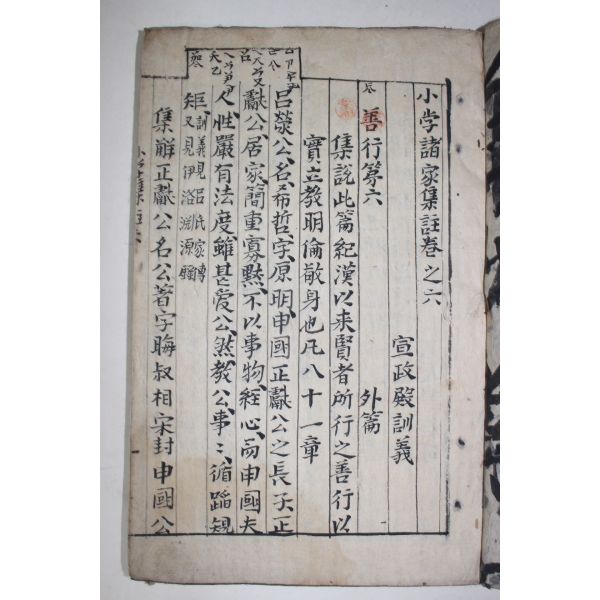 小学諸家集註卷之六
宣政殿訓義
善行第六 外篇
集說此篇紀漢以来賢者所行之善行以
實立教明倫敬身也凡八十一章
呂滎公名希哲字原明申國正獻公之長子正
獻公居家簡重寡默不以事物経心而申國夫
人性嚴有法度雖甚愛公然教公事〻循蹈規
矩訓義見呂氏家傳
又見伊洛淵源錄
集解正獻公名公著字晦叔相宋封申國公